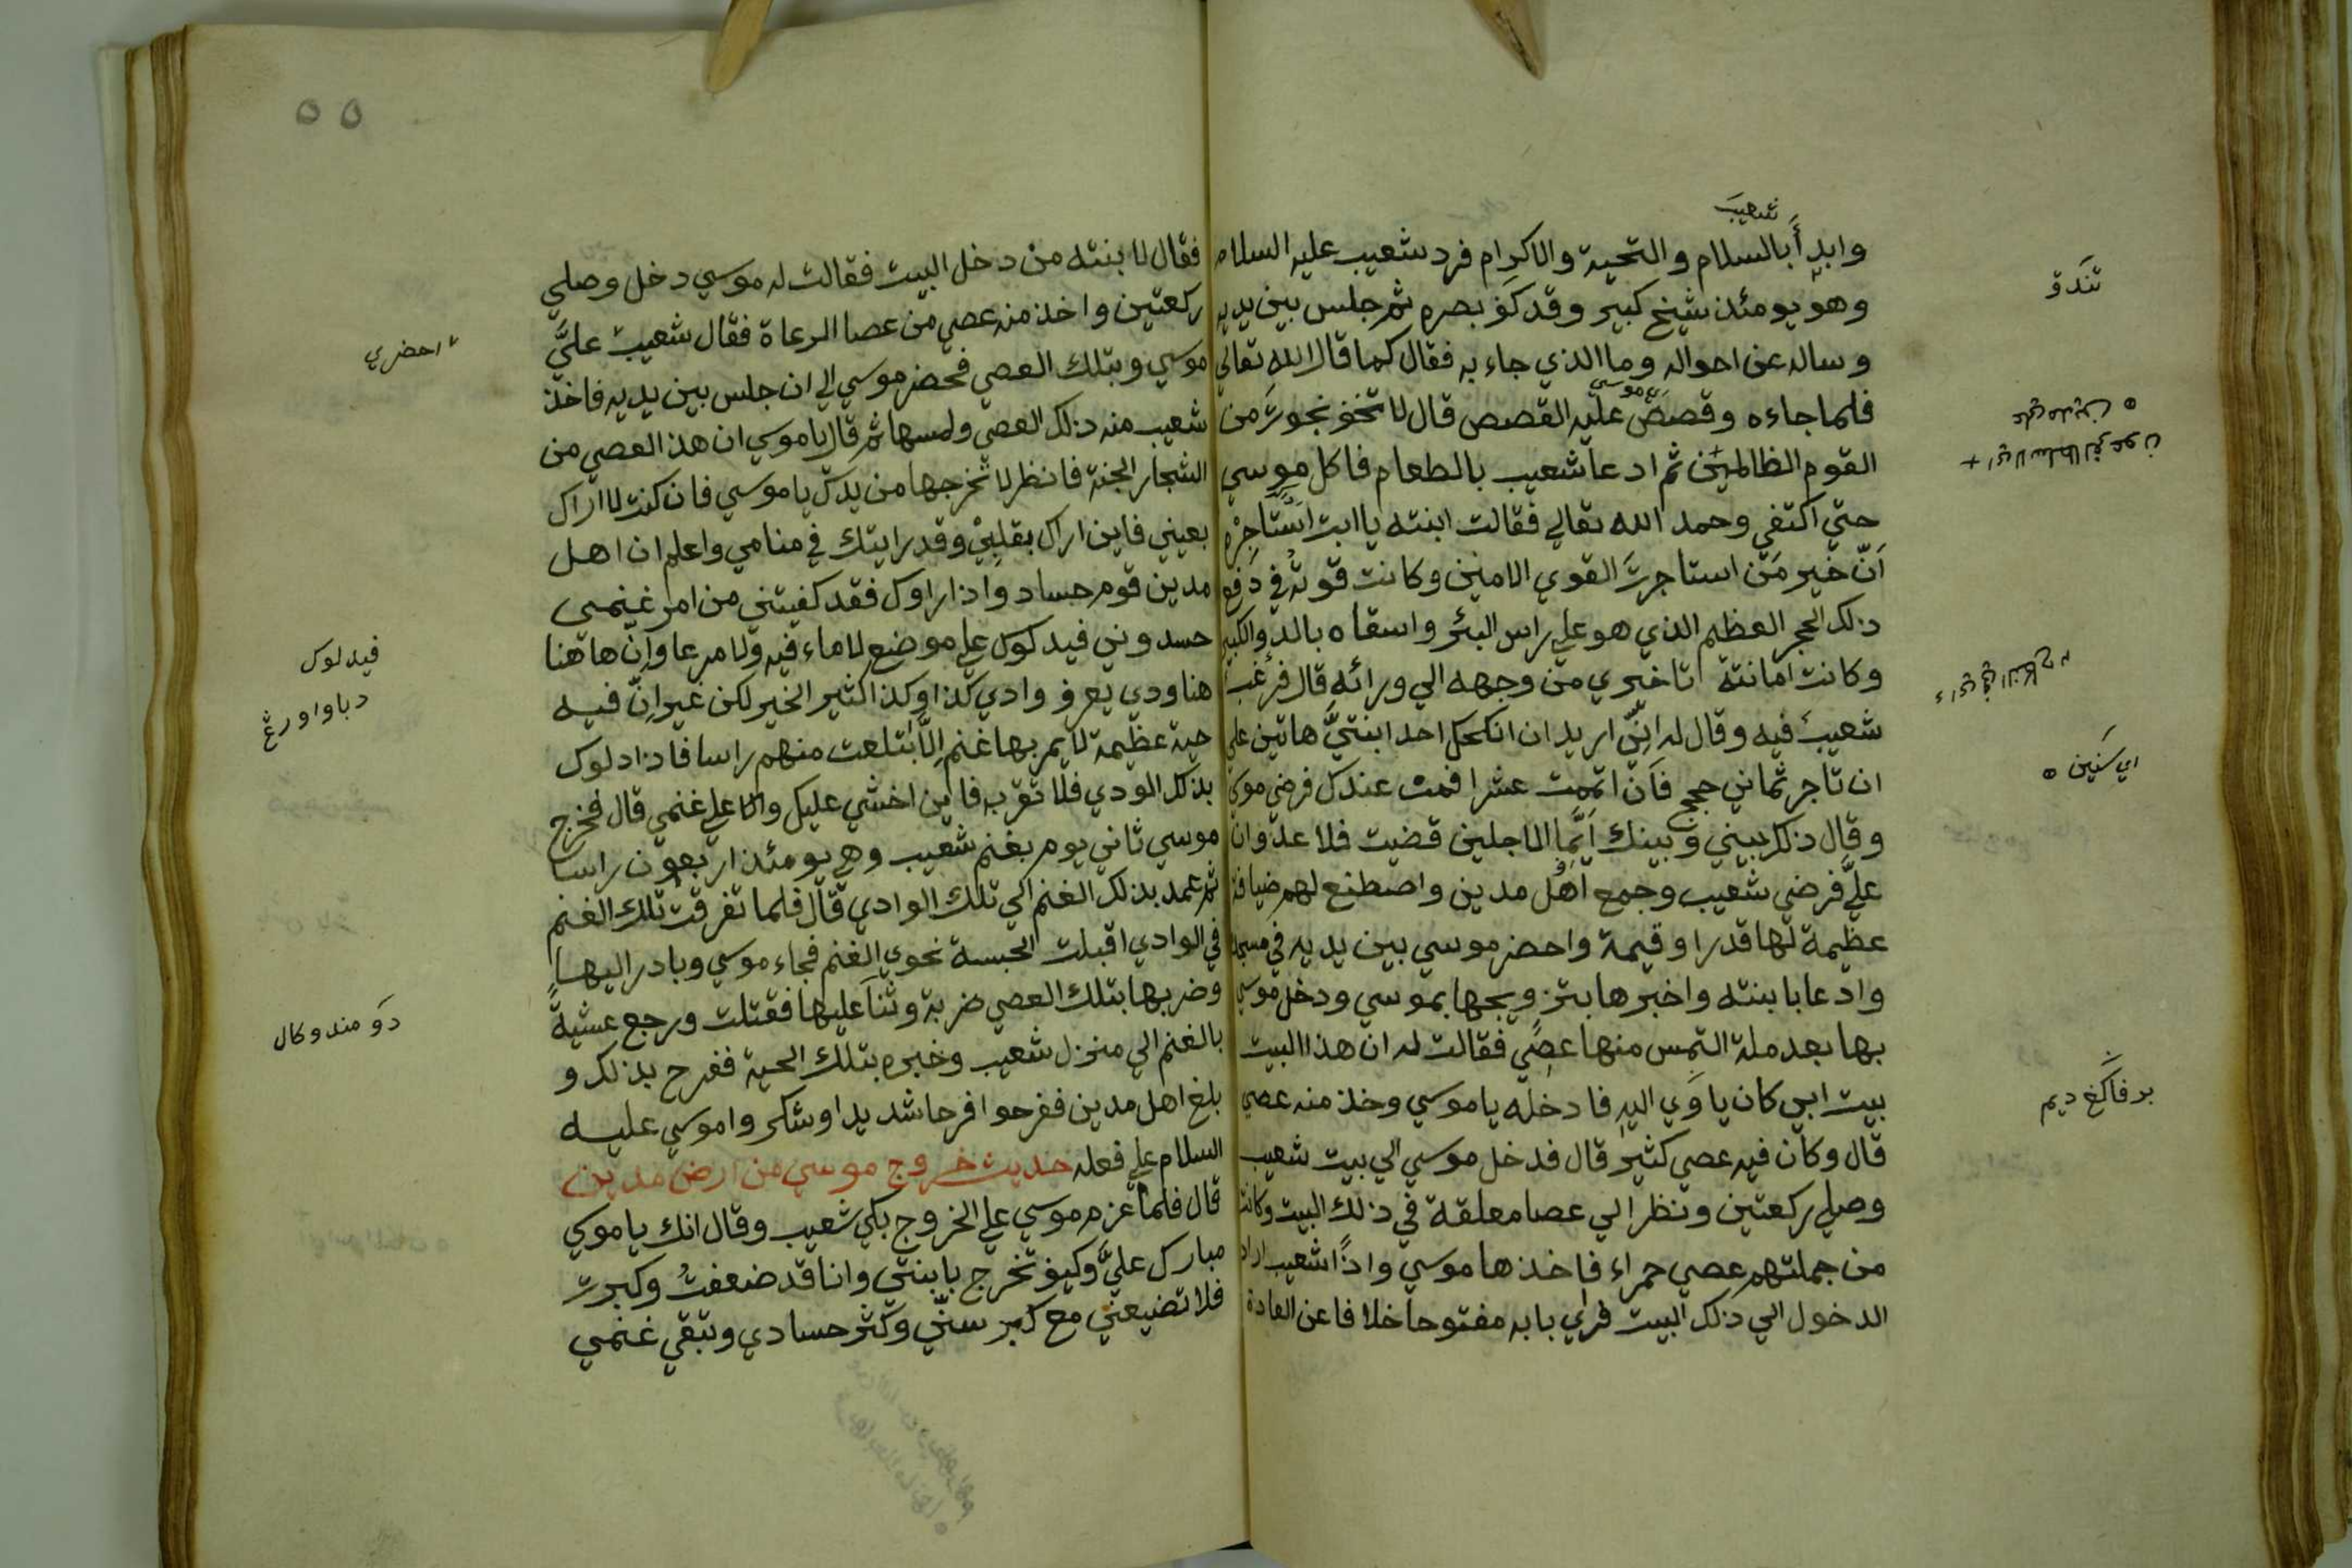 شعيب
وابدأ بالسلام والتحية والاكرام فرد شعيب عليه السلام
وهو يومئذ شيخ كبير وقد كف بصره ثم جلس بين يديه
وساله عن احواله وما الذي جاء به فقال كما قال الله تعالي
فلما جاءه وقصص عليه القصص قال لا تخف نجوت من
القوم الظالمين ثم ادعا شعيب بالطعام فاكل موسي
حتي اكتفي وحمد الله تعالي فقالت ابنته يا ابت استاجره
ان خير من استاجرت القوي الامين وكانت قوته في دفع
ذلك الحجر العظيم الذي هو علي راس البئر واسقاه بالدلو الكبير
وكانت امانته تاخيري من وجهه الي ورائه قال فرغب
شعيب فيه وقال له اني اريد ان انكحك احد ابنتي هاتين علي
ان تاجر ثماني حجج فان اتممت عشرا فمن عندك فرضي موسي
وقال ذلك بيني وبينك ايما الاجلين قضيت فلا عدوان
علي فرضي شعيب وجمع اهل مدين واصطنع لهم ضيافة
عظيمة لها قدرا وقيمة واحضر موسي بين يديه في مسجد
وادعا بابنته واخبرها بتزويجها بموسي ودخل موسي
بها بعد ملة التمس منها عصي فقالت له ان هذا البيت
بيت ابي كان ياوي اليه فادخله يا موسي وخذ منه عصي
قال وكان فيه عصي كثير قال فدخل موسي الي بيت شعيب
وصلي ركعتين ونظر الي عصا معلقة في ذلك البيت وكانت
من جملتهم عصي حمراء فاخذها موسي واذا شعيب اراد
الدخول الي ذلك البيت فراي بابه مفتوحا خلافا عن العادة
تندق
اي سنين
بر فاكغ ديم
٥٥
فقال لابنته من دخل البيت فقالت له موسي دخل وصلي
ركعتين واخذ منه عصي من عصا الرعاة فقال شعيب علي
موسي وبتلك العصي فحضر موسي الي ان جلس بين يديه فاخذ
شعيب منه ذلك العصي ولمسها ثم قال يا موسي ان هذا العصي من
اشجار الجنة فانظر لا تخرجها من يدك يا موسي فان كنت لا اراك
بعيني فاين اراك بقلبي وقد رايتك في منامي واعلم ان اهل
مدين قوم حساد واذا راوك فقد كفيتني من امر غنمي
حسدوني فيدلوك علي موضع لا ماء فيه ولا مرعا وان هاهنا
هنا ودي يعرف وادي كذا وكذا كثير الخير لكن غير ان فيه
حية عظيمة لا يمر بها غنم الا ابتلعت منهم راسا فاذا دلوك
بذلك الودي فلا تقربه فاين اخشي عليك والا علي غنمي قال فخرج
موسي ثاني يوم بغنم شعيب وهي يومئذ اربعون راسا
ثم عمد بذلك الغنم الي تلك الوادي قال فلما تفرقت تلك الغنم
في الوادي اقبلت الحبسة نحوي الغنم فجاء موسي وبادر اليها
وضربها بتلك العصي ضربة وثنا عليها فقتلت ورجع عشية
بالغنم الي منزل شعيب وخبره بتلك الحية ففرح بذلك و
بلغ اهل مدين ففرحوا فرحا شديدا وشكروا موسي عليه
السلام علي فعله حديث خروج موسي من ارض مدين
قال فلما عزم موسي علي الخروج بكي شعيب وقال انك يا موسي
مبارك علي وكيف تخرج بابنتي وانا قد ضعفت وكبرت
فلا تضيعني مع كبر سني وكثر حسادي وتبقي غنمي
احضري
فيدلوك
دباوا ورغ
دو مندوكال